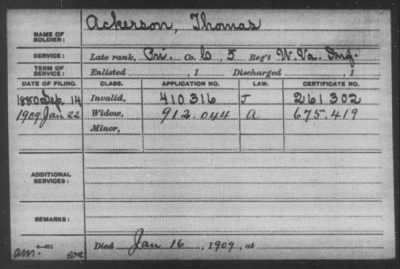 Ackerson, Thomas
NAME OF SOLDIER:
SERVICE: Late rank, Pri. Co. C, 5 Reg't W. Va. Inf.
TERM OF SERVICE: Enlisted , 1 Discharged , 1
DATE OF FILING. CLASS. APPLICATION NO. LAW. CERTIFICATE NO.
1880 Sep 14 Invalid, 410316 J 261302
1909 Jan 22 Widow, 912.044 A 675.419
Minor,
ADDITIONAL SERVICES:
REMARKS:
Died Jan 16, 1909, at
am.